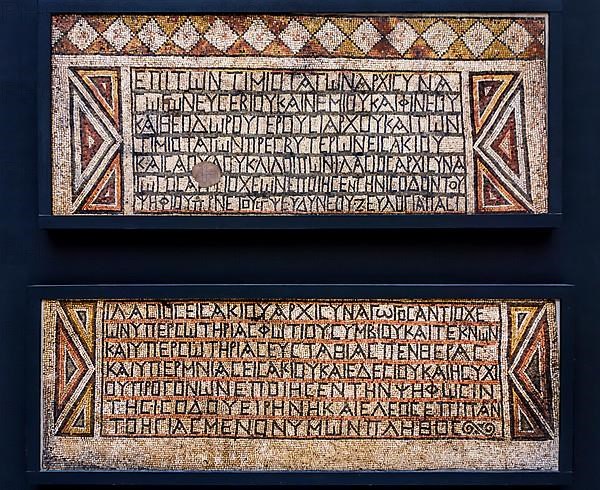 ΕΠΙΤΩΝΤΙΜΙΟΤΑΤΩΝΑΡΧΙϹΥΝΑ
ΓΩΓΩΝΕΥϹΕΒΙΟΥΚΑΙΝΕΜΙΟΥΚΑΙΦΙΝΕΟΥ
ΚΑΙΘΕΟΔΩΡΟΥΓΕΡΟΥϹΙΑΡΧΟΥΚΑΙΤΩΝ
ΤΙΜΙΟΤΑΤΩΝΠΡΕϹΒΥΤΕΡΩΝΕΙϹΑΚΙΟΥ
ΚΑΙϹΑΟΥΛΟΥΚΑΙΛΟΙΠΩΝΙΛΑϹΙΟϹΑΡΧΙϹΥΝΑ
ΓΩΓΟϹΑΝΤΙΟΧΕΩΝΕΠΟΙΗϹΕΝΤΗΝΙϹΟΔΟΝΤΟΥ
ΨΗΦΙΟΥΠΡΝΕΤΟΥϹΓΨΕΥΔΥΝΕΟΥΖΕΥΛΟΓΙΑΠΑϹΙ
ΙΛΑϹΙΟϹΕΙϹΑΚΙΟΥΑΡΧΙϹΥΝΑΓΩΓΟϹΑΝΤΙΟΧΕ
ΩΝΥΠΕΡϹΩΤΗΡΙΑϹΦΩΤΙΟΥϹΥΜΒΙΟΥΚΑΙΤΕΚΝΩΝ
ΚΑΙΥΠΕΡϹΩΤΗΡΙΑϹΕΥϹΤΑΘΙΑϹΠΕΝΘΕΡΑϹ
ΚΑΙΥΠΕΡΜΝΙΑϹΕΙϹΑΚΙΟΥΚΑΙΕΔΕϹΙΟΥΚΑΙΗϹΥΧΙ
ΟΥΠΡΟΓΟΝΩΝΕΠΟΙΗϹΕΝΤΗΝΨΗΦΩϹΕΙΝ
ΤΗϹΙϹΟΔΟΥΕΙΡΗΝΗΚΑΙΕΛΕΟϹΕΠΙΠΑΝ
ΤΟΗΓΙΑϹΜΕΝΟΝΥΜΩΝΠΛΗΘΟϹ